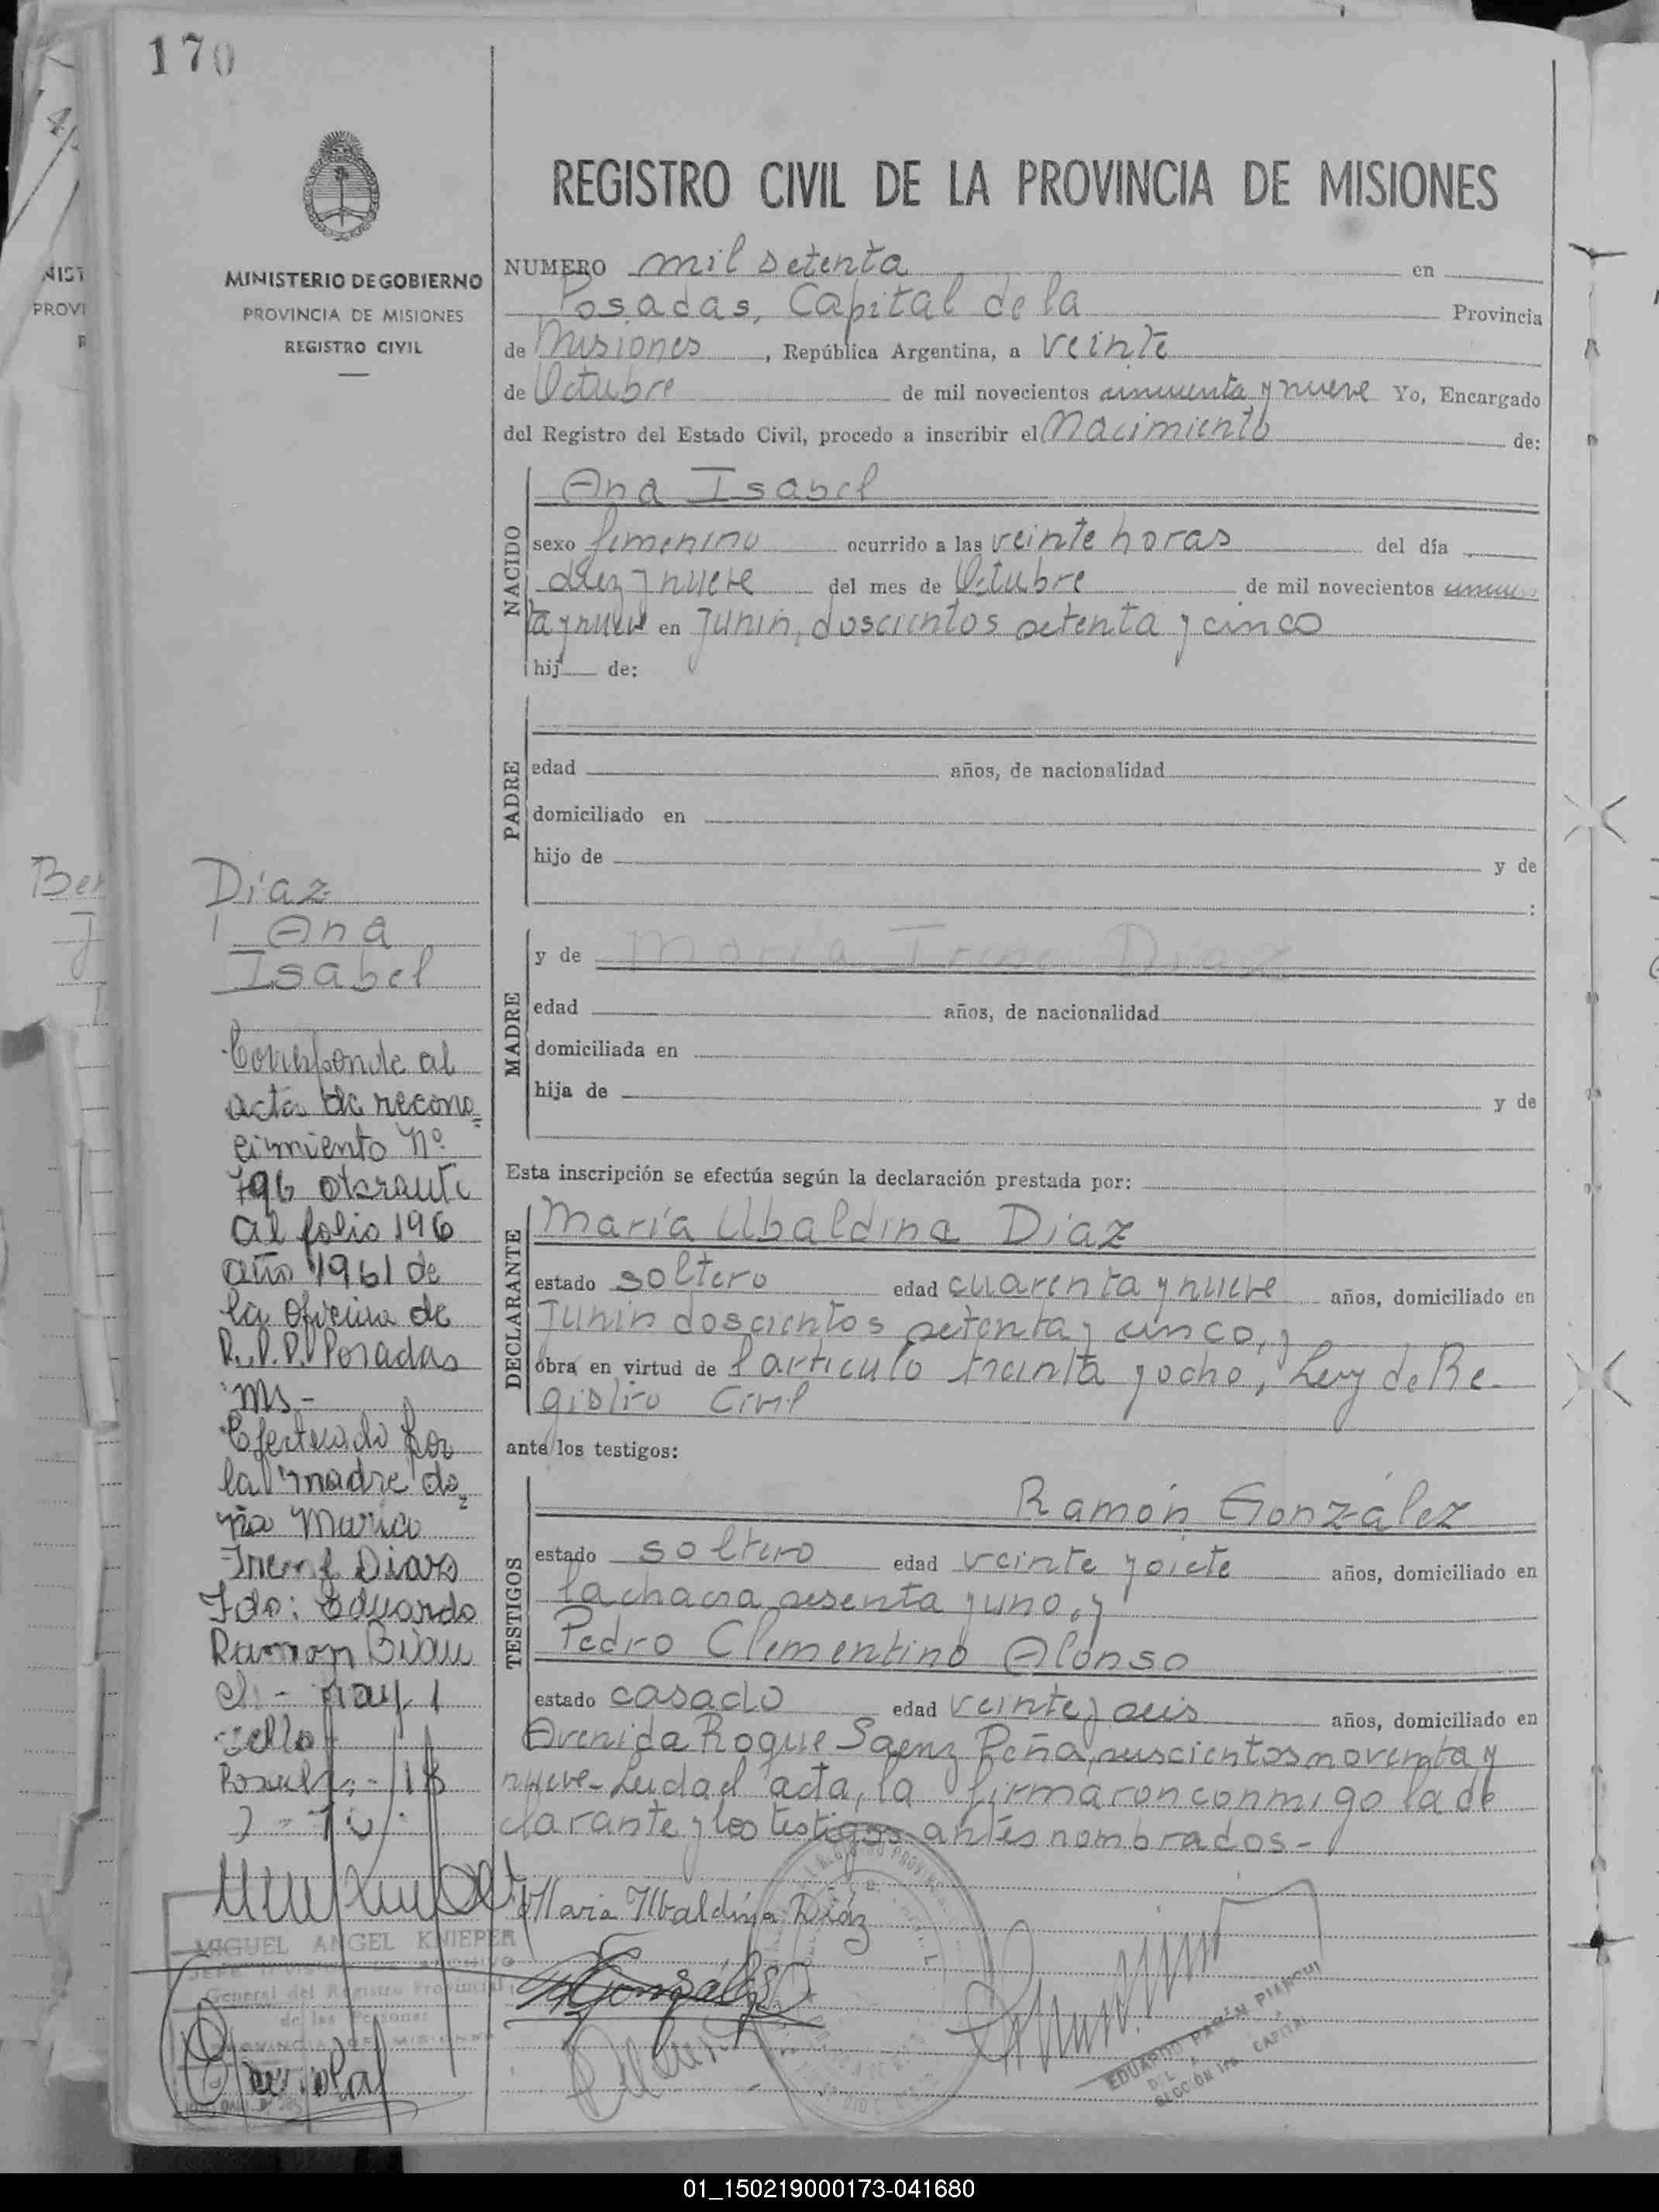 170
MINISTERIO DE GOBIERNO
PROVINCIA DE MISIONES
REGISTRO CIVIL
REGISTRO CIVIL DE LA PROVINCIA DE MISIONES
NUMERO mil setenta en
Posadas, Capital de la Provincia
de Misiones, República Argentina, a veinte
de Octubre de mil novecientos cincuenta y nueve Yo, Encargado
del Registro del Estado Civil, procedo a inscribir el Nacimiento de:
NACIDO
Ana Isabel
sexo femenino ocurrido a las veinte horas del día
diez y nueve del mes de Octubre de mil novecientos cincuen
ta y nueve en Junin, doscientos setenta y cinco
hij de:
PADRE
edad años, de nacionalidad
domiciliado en
hijo de y de
:
MADRE
y de María Irene Diaz
edad años, de nacionalidad
domiciliada en
hija de y de
Esta inscripción se efectúa según la declaración prestada por:
DECLARANTE
María Ubaldina Diaz
estado soltero edad cuarenta y nueve años, domiciliado en
Junin doscientos setenta y cinco, y
obra en virtud de l artículo treinta y ocho, Ley de Re-
gistro Civil
ante los testigos:
TESTIGOS
Ramón González
estado soltero edad veinte y siete años, domiciliado en
la chacra sesenta y uno, y
Pedro Clementino Alonso
estado casado edad veinte y seis años, domiciliado en
Avenida Roque Saenz Peña, noventa y
nueve- Leida el acta, la firmaron conmigo la de
clarante y los testigos antes nombrados-
Diaz
Ana
Isabel
Corresponde al
acta de recono
cimiento Nº
796 obrante
al folio 196
año 1961 de
la Oficina de
R.P.P. Posadas
Ms-
Efectuado por
la madre do
ña Maria
Irene Diaz
Fdo: Eduardo
Ramon
Hay 1
sello
Maria Ubaldina Diáz
González
MIGUEL ANGEL KNIEPER
JEFE DIVISION DE ARCHIVO
General del Registro Provincial
de las Personas
PROVINCIA DE MISIONES
EDUARDO RAMÓN
SECCIÓN 1ra. CAPITAL
01_150219000173-041680